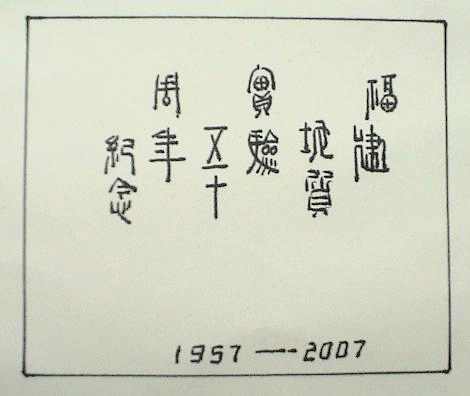 福建
地質
實驗
五十
周年
紀念
1957—2007